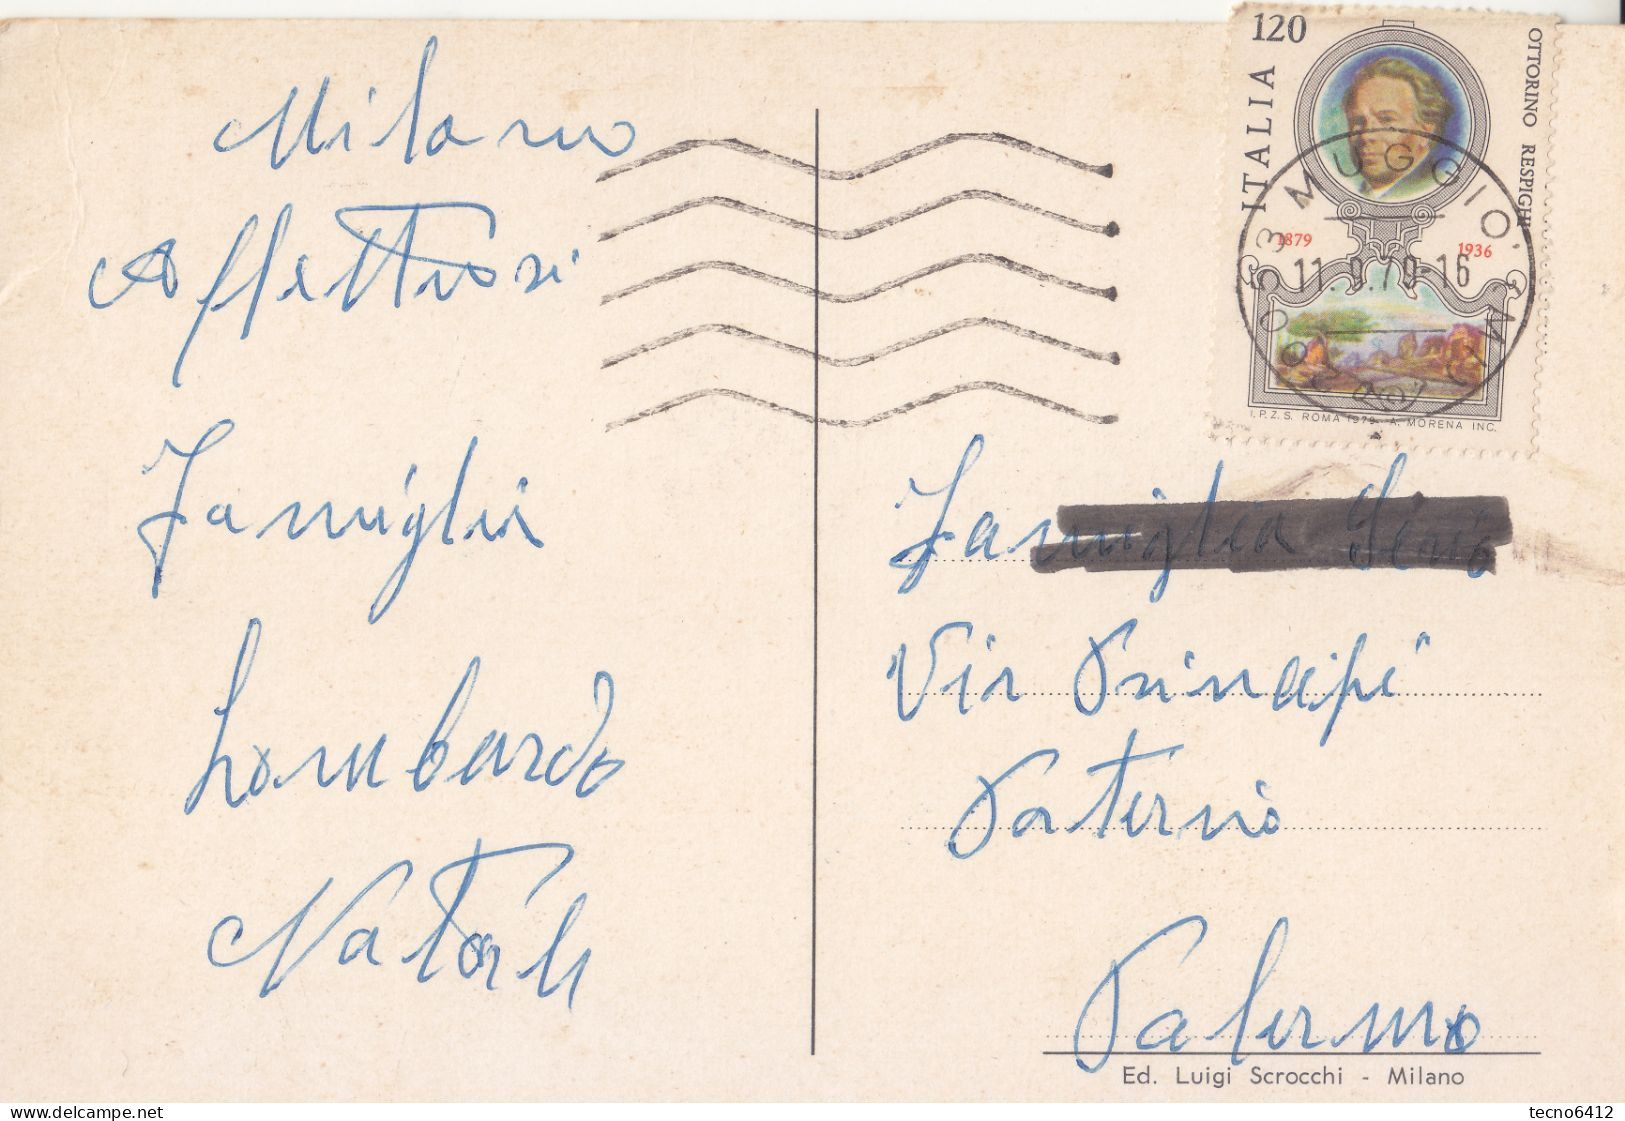 Milano
Affettuosi
Famiglia
Lombardo
Natale
120
ITALIA
OTTORINO RESPIGHI
1879
1936
I.P.Z.S. ROMA 1979 A. MORENA INC.
MUGGIO'
11.9.79-16
Famiglia
Via Principi
Paternò
Palermo
Ed. Luigi Scrocchi - Milano
delcampe.net
tecno6412